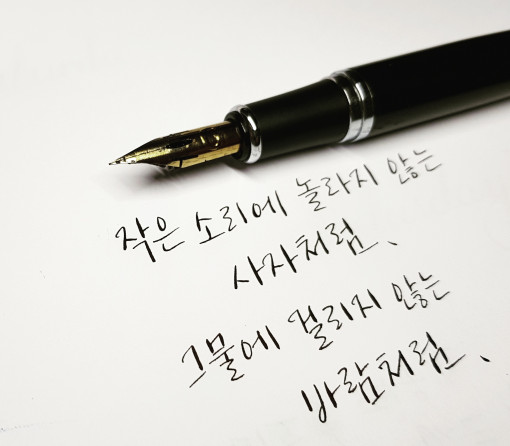 작은 소리에 놀라지 않는
사자처럼、
그물에 걸리지 않는
바람처럼、